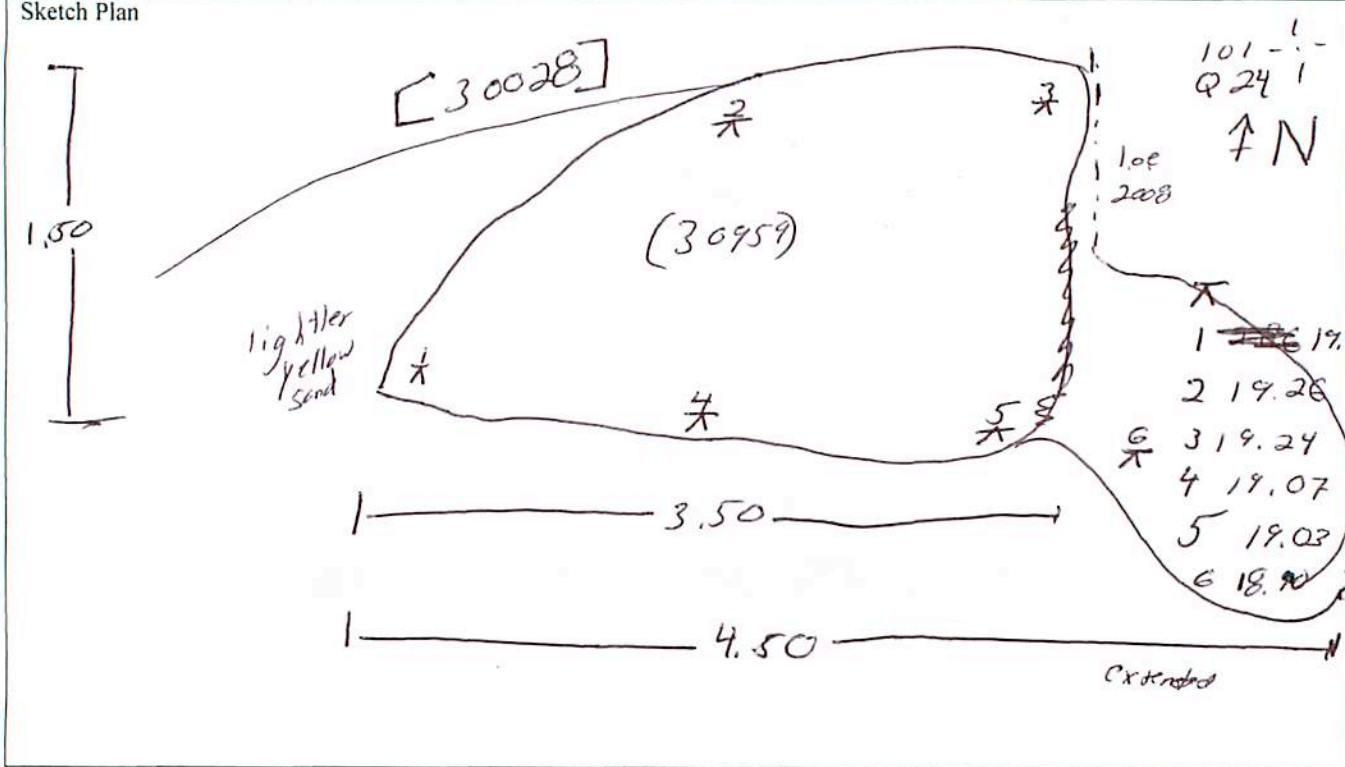 Sketch Plan
[30028]
101
Q 24
N
1.50
2
3
loe
2008
(30959)
lightler
yellow
sand
1
4
5
6
1 19.
2 19.26
3 19.24
4 19.07
5 19.03
6 18.90
3.50
4.50
extended